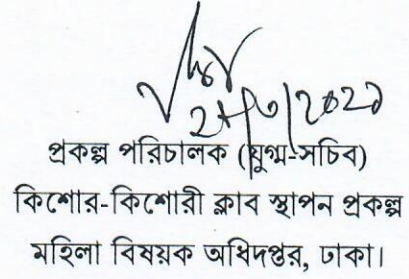 প্রকল্প পরিচালক (যুগ্ম-সচিব)
কিশোর-কিশোরী ক্লাব স্থাপন প্রকল্প
মহিলা বিষয়ক অধিদপ্তর, ঢাকা।